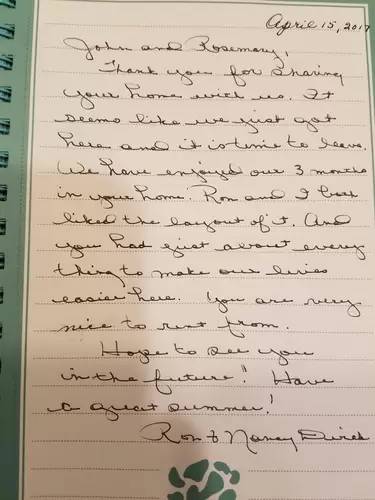 April 15, 2017
John and Rosemary,
Thank you for sharing
your home with us. It
seems like we just got
here and it is time to leave.
We have enjoyed our 3 months
in your home. Ron and I both
liked the layout of it. And
you had just about every
thing to make our lives
easier here. You are very
nice to rent from.
Hope to see you
in the future! Have
a great summer!
Ron & Nancy